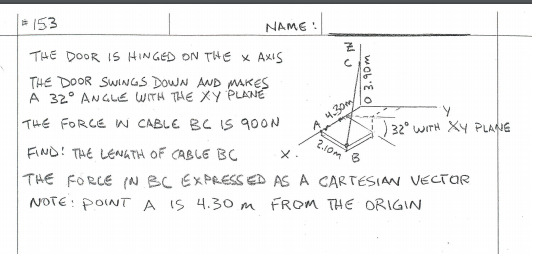 # 153
NAME:
THE DOOR IS HINGED ON THE X AXIS
THE DOOR SWINGS DOWN AND MAKES
A 32° ANGLE WITH THE XY PLANE
THE FORCE IN CABLE BC IS 900N
FIND: THE LENGTH OF CABLE BC
THE FORCE IN BC EXPRESSED AS A CARTESIAN VECTOR
NOTE: POINT A IS 4.30 m FROM THE ORIGIN
Z
C
3.90m
O
4.30m
Y
A
32° WITH XY PLANE
2.10m
B
X.